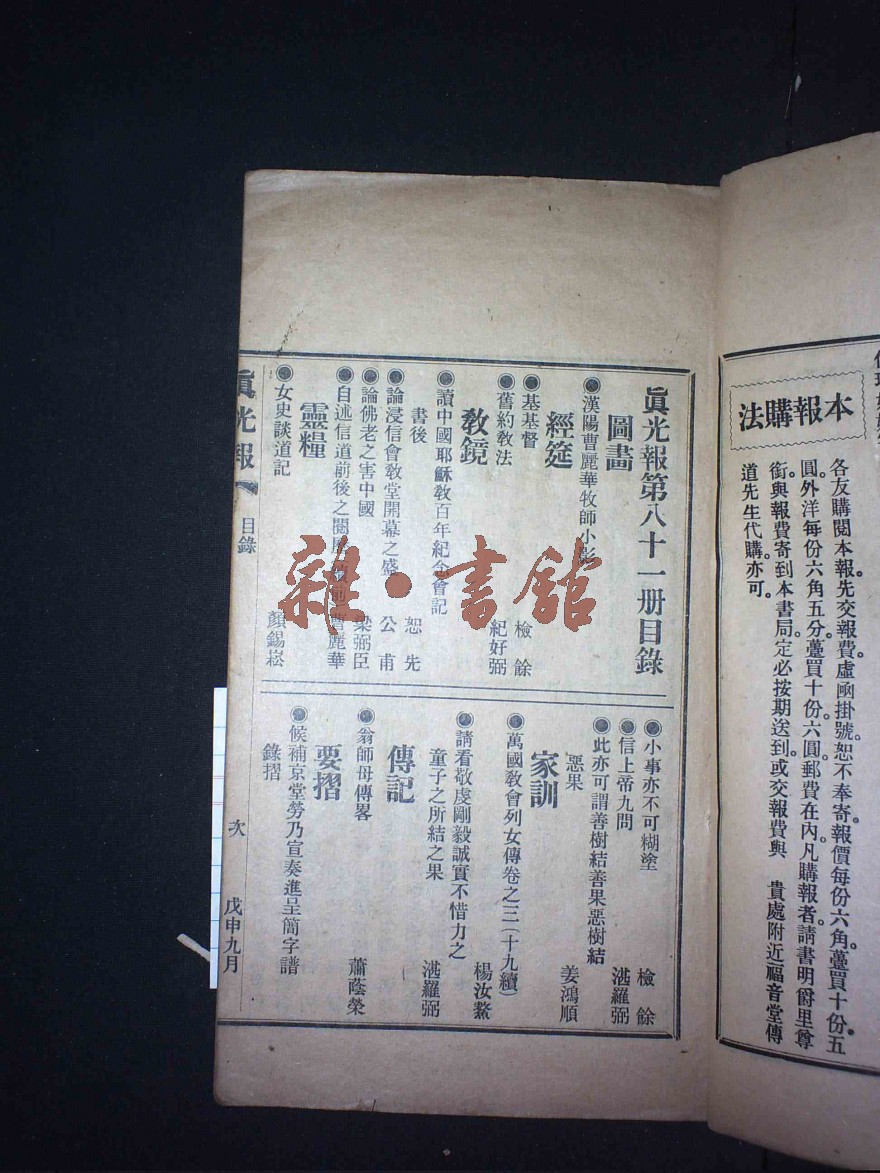 本報購法
各友購閱本報先交報費虛函掛號恕不奉寄報價每份六角薹買十份五
圓。外洋每份六角五分薹買十份六圓。郵費在內。凡購報者。請書明爵里尊
銜與報費寄到本書局。定必按期送到。或交報費與 貴處附近福音堂傳
道先生代購亦可。
眞光報第八十一册目錄
圖畫
●漢陽曹麗華牧師小影
經筵
●基基督 檢餘
●舊約敎法 紀好弼
敎鏡
●讀中國耶穌敎百年紀念會記
書後 恕先
●論浸信會敎堂開幕之盛 公甫
●論佛老之害中國 梁弼臣
●自述信道前後之閱歷 曹麗華
靈糧
●女史談道記 顏錫崧
●小事亦不可糊塗 檢餘
●信上帝九問 湛羅弼
●此亦可謂善樹結善果惡樹結
惡果 姜鴻順
家訓
●萬國敎會列女傳卷之三(十九續) 楊汝鰲
●請看敬虔剛毅誠實不惜力之
童子之所結之果 湛羅弼
傳記
●翁師母傳畧 蕭蔭榮
要摺
●候補京堂勞乃宣奏進呈簡字譜
錄摺
眞光報 目錄 次 戊申九月
雜·書館